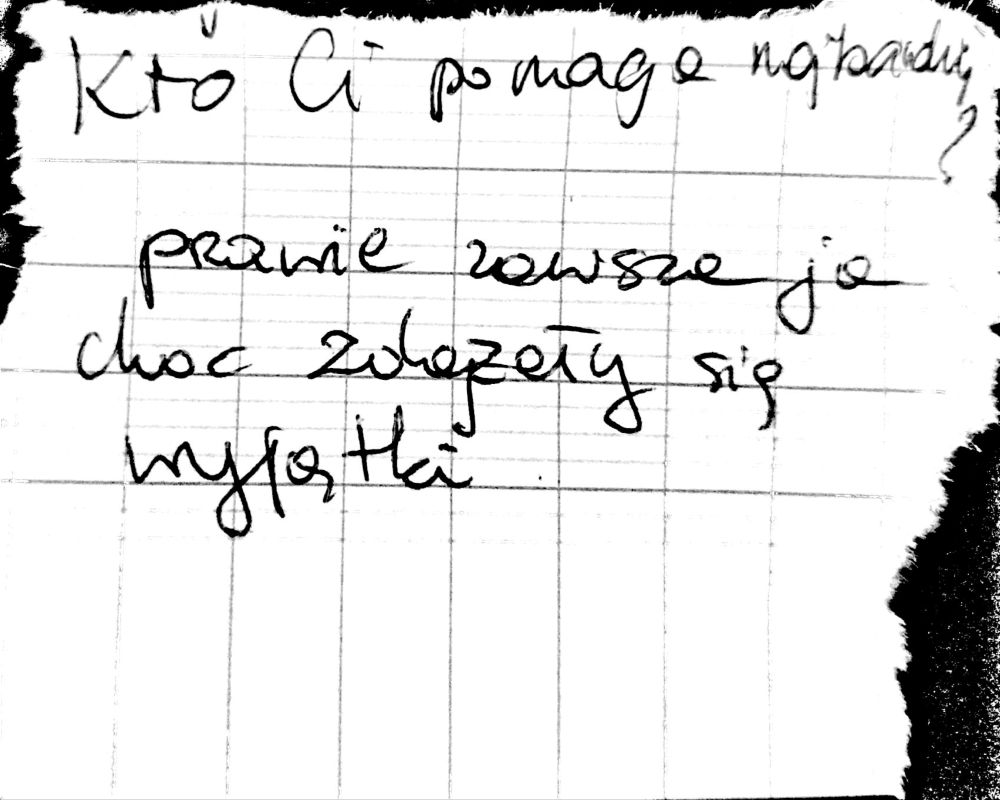 Któ Ci pomaga najbardziej
?
prawie zawsze ja
choc zdażały się
wyjątki.